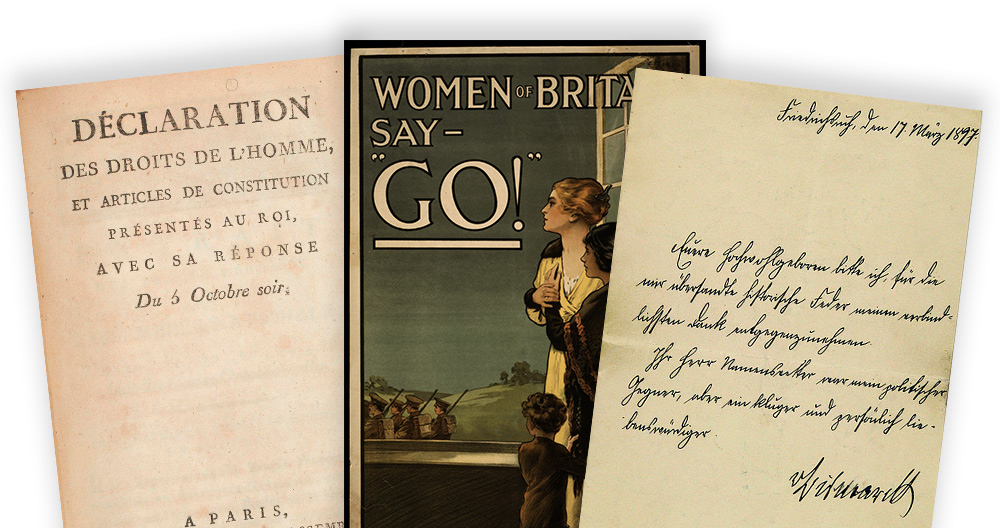 DÉCLARATION
DES DROITS DE L'HOMME,
ET ARTICLES DE CONSTITUTION
PRÉSENTÉS AU ROI,
AVEC SA RÉPONSE
Du 5 Octobre soir.
A PARIS,
WOMEN OF BRITA
SAY–
"GO!"
Friedrichsruh, den 17. März 1897.
Euere Hochwohlgeboren bitte ich, für die
mir übersandte historische Feder meinen verbind-
lichsten Dank entgegenzunehmen.
Ihr Herr Namensvetter war mein politischer
Gegner, aber ein kluger und persönlich lie-
benswürdiger.
vBismarck